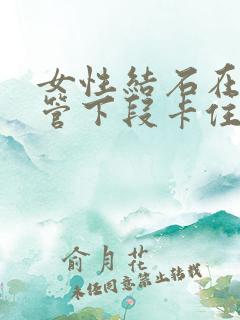 女性結石在
管下段卡住
俞月花
未经同意禁止转载